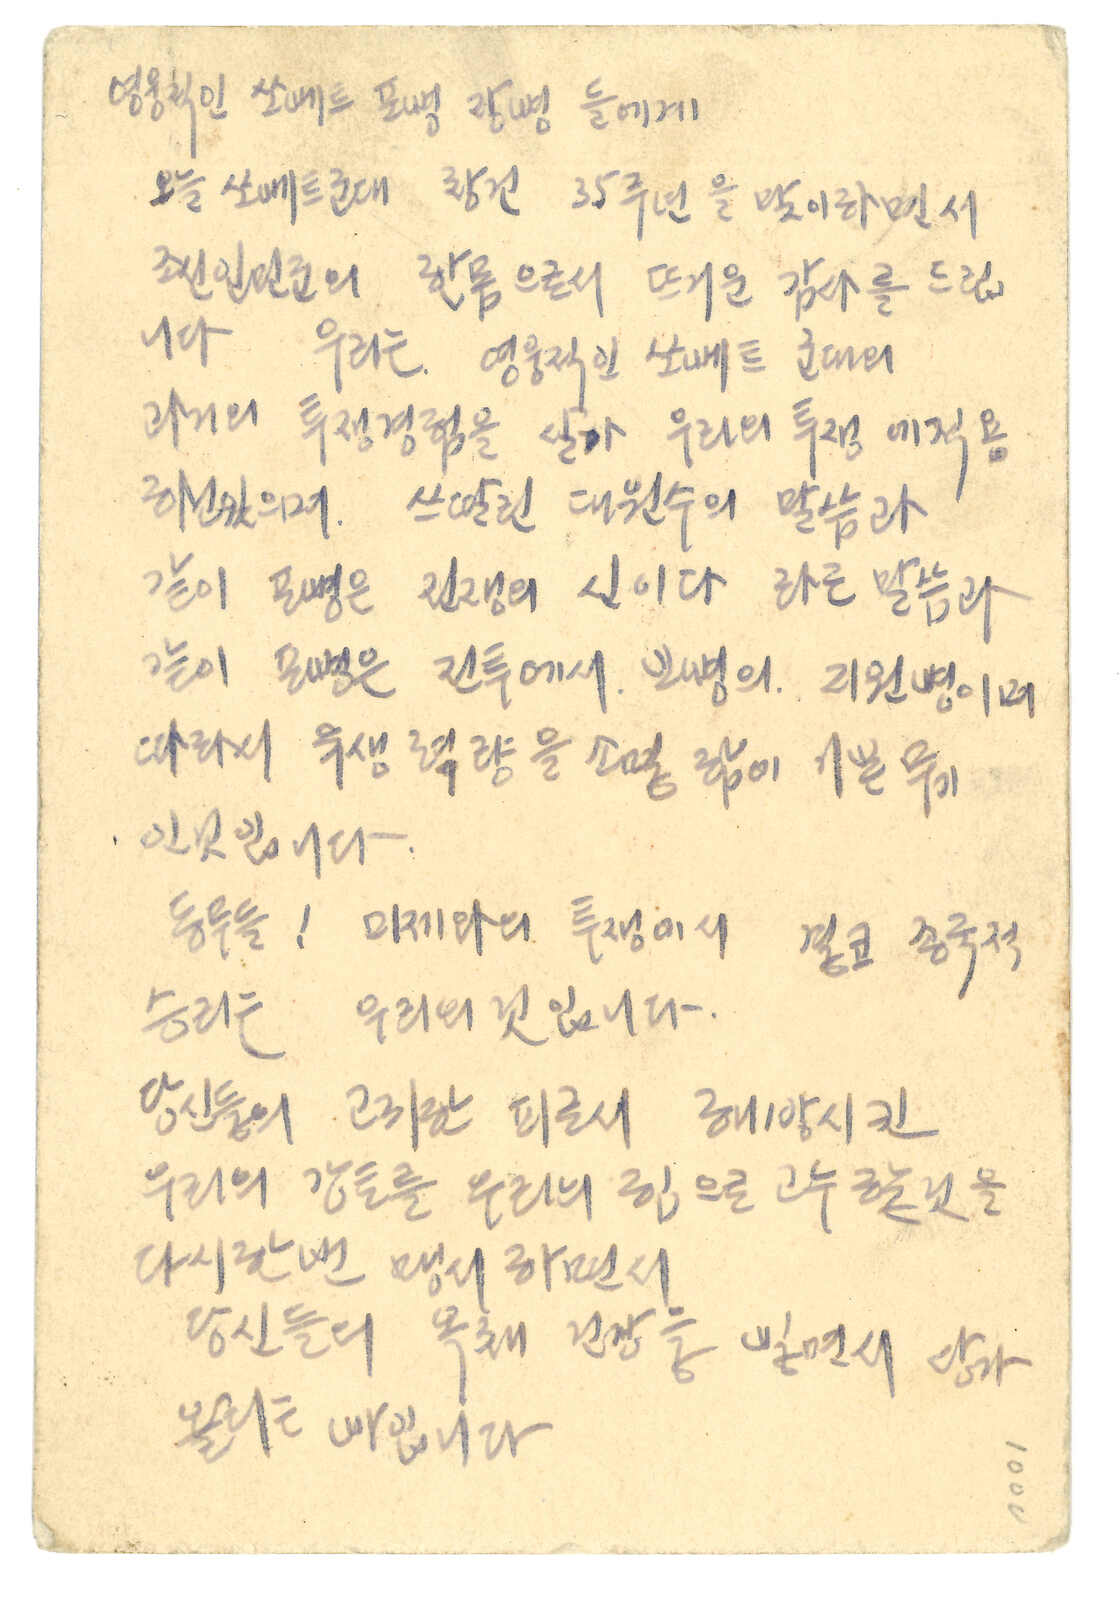 영웅적인 쏘베트 포병 장병 들에게
오늘 쏘베트군대 창건 35주년을 맞이하면서
조선인민군의 한몸으로서 뜨거운 감사를 드립
니다 우리는. 영웅적인 쏘베트 군대의
과거의 투쟁경험을 살가 우리의 투쟁 에적용
하였으며. 쓰딸린 대원수의 말씀과
같이 포병은 전쟁의 신이다 라는 말씀과
같이 포병은 전투에서. 보병의. 지원병이며
따라서 력량을 소멸 무기
인것입니다.
동무들! 미제와의 투쟁에서 결코 종국적
승리는 우리의것입니다.
당신들의 고귀한 피로서 해방시킨
우리의 강토를 우리의 힘으로 고수 할것을
다시한번 맹서하면서
당신들의 옥체 건강을 빌면서
바입니다
1000